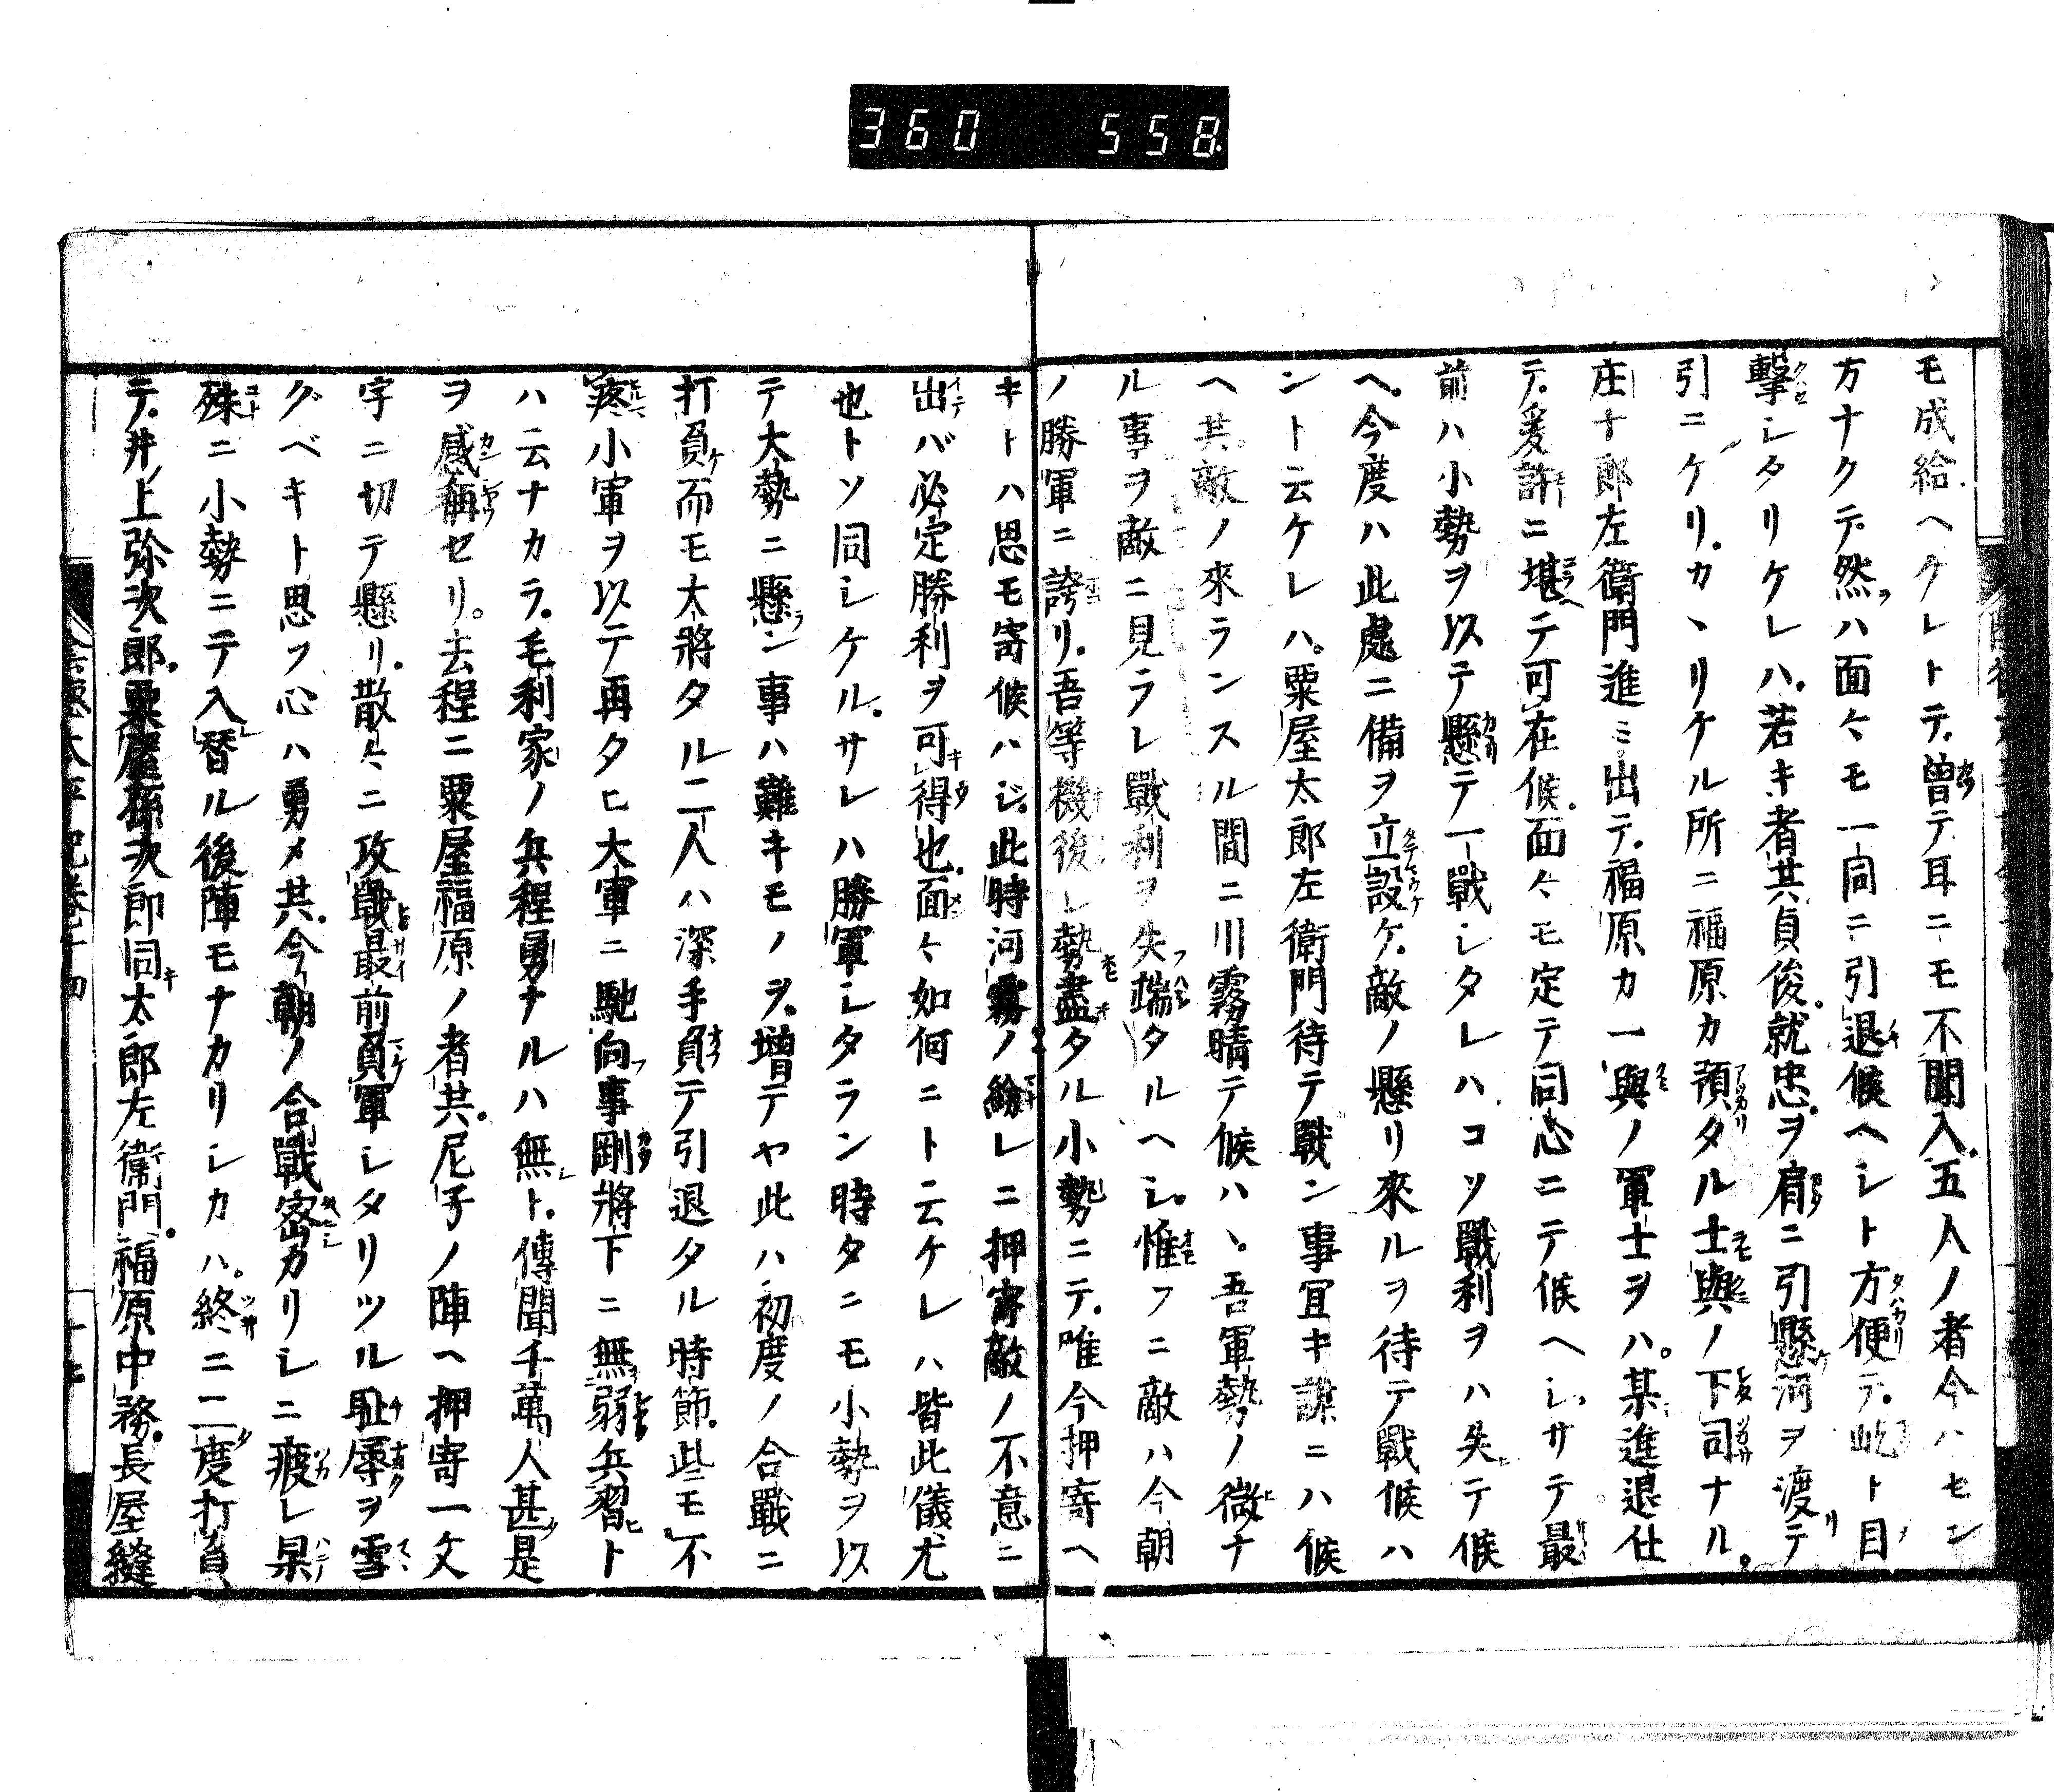 360 558
モ成給ヘクレトテ曽テ耳ニモ不聞入五人ノ者今ハセン
方ナクテ然ハ面々モ一同ニ引退候ヘシト方便テ屹ト目
撃シタリケレハ若キ者共貞俊就忠ヲ肩ニ引懸河ヲ渡テ
引ニケリカヽリケル所ニ福原カ預タル士與ノ下司ナル
庄十郎左衛門進ミ出テ福原カ一與ノ軍士ヲハ某進退仕
テ爰許ニ堪テ可在候面々モ定テ同心ニテ候ヘシサテ最
前ハ小勢ヲ以テ懸テ一戰シタレハコソ戰利ヲハ失テ候
ヘ今度ハ此處ニ備ヲ立設ケ敵ノ懸リ來ルヲ待テ戰候ハ
ント云ケレハ粟屋太郎左衛門待テ戰ン事宜キ謀ニハ候
ヘ共敵ノ來ランスル間ニ川霧晴テ候ハヽ吾軍勢ノ微ナ
ル事ヲ敵ニ見ラレ戰利ヲ失端タルヘシ惟フニ敵ハ今朝
ノ勝軍ニ誇リ吾等機後レ勢盡タル小勢ニテ唯今押寄ヘ
キトハ思モ寄候ハジ此時河霧ノ紛レニ押寄敵ノ不意ニ
出バ必定勝利ヲ可得也面々如何ニト云ケレハ皆此儀尤
也トソ同シケルサレハ勝軍シタラン時タニモ小勢ヲ以
テ大勢ニ懸ン事ハ難キモノヲ増テヤ此ハ初度ノ合戰ニ
打負而モ大將タル二人ハ深手負テ引退タル時節些モ不
疼小軍ヲ以テ再タヒ大軍ニ馳向事剛將下ニ無弱兵習ト
ハ云ナカラ毛利家ノ兵程勇ナルハ無ト傳聞千萬人甚是
ヲ感稱セリ去程ニ粟屋福原ノ者共尼子ノ陣ヘ押寄一文
字ニ切テ懸リ散々ニ攻戰最前負軍シタリツル耻辱ヲ雪
グベキト思フ心ハ勇メ共今朝ノ合戰密カリシニ疲レ杲
殊ニ小勢ニテ入替ル後陣モナカリシカハ終ニ二度打負
テ井ノ上弥次郎粟屋孫次郎同太郎左衛門福原中務長屋縫